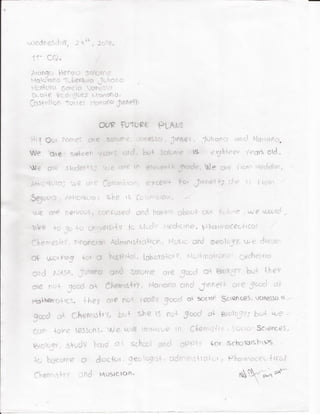 wednesday, 24th, 2018.
11° 02.
Arango Henao Salome
Montoya Garcia Vanessa
Duque Rodriguez Mariana.
Castrillon Torres Mariana Jannell
OUR FUTURE PLANS
Hi! Our names are Salome, Vanessa, Jannell, Juliana and Mariana.
We are sixteen years old, but Salome is eighteen years old,
We are students, we are in eleventh grade. We are from Medellin,
Antioquia; we are Colombian, except for Jannell; she is from
she is Colombian,
we are nervous, confused and happy about our future, we would
like to go to university to study medicine, Pharmaceutical
Chemestry, Financial Administration, Music and geology, we dream
of working for a hospital, laboratory, Multinational, orchestra
and NASA, Juliana and Salome are good at Biology; but they
are not good at Chemistry, Mariana and Jannell are good at
Mathematics, they are not really good at social Sciences, Vanessa is
good at Chemistry, but she is not good at Biology; but we
can take lessons. We will improve in Chemistry, social Sciences,
Biology, study hard at school and apply for scholarships
to become a doctor, geologist, administrator, Pharmaceutical
Chemistry and Musician.